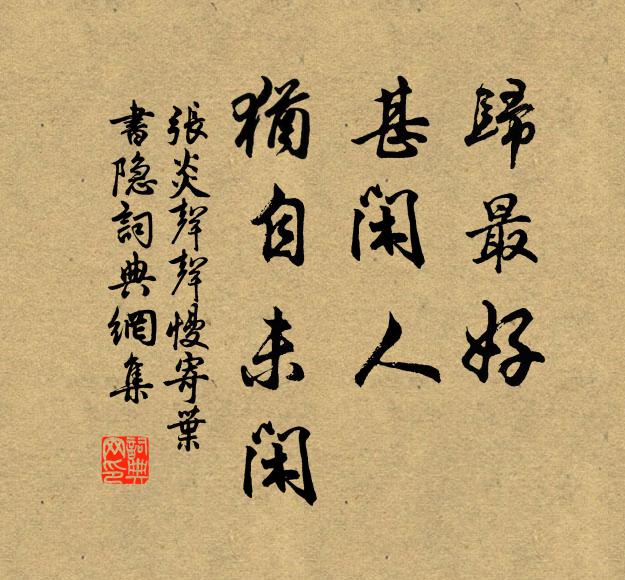 歸最好
甚閑人
猶自未閑
張炎聲聲慢寄葉
書隐詞典網集
詞典网印